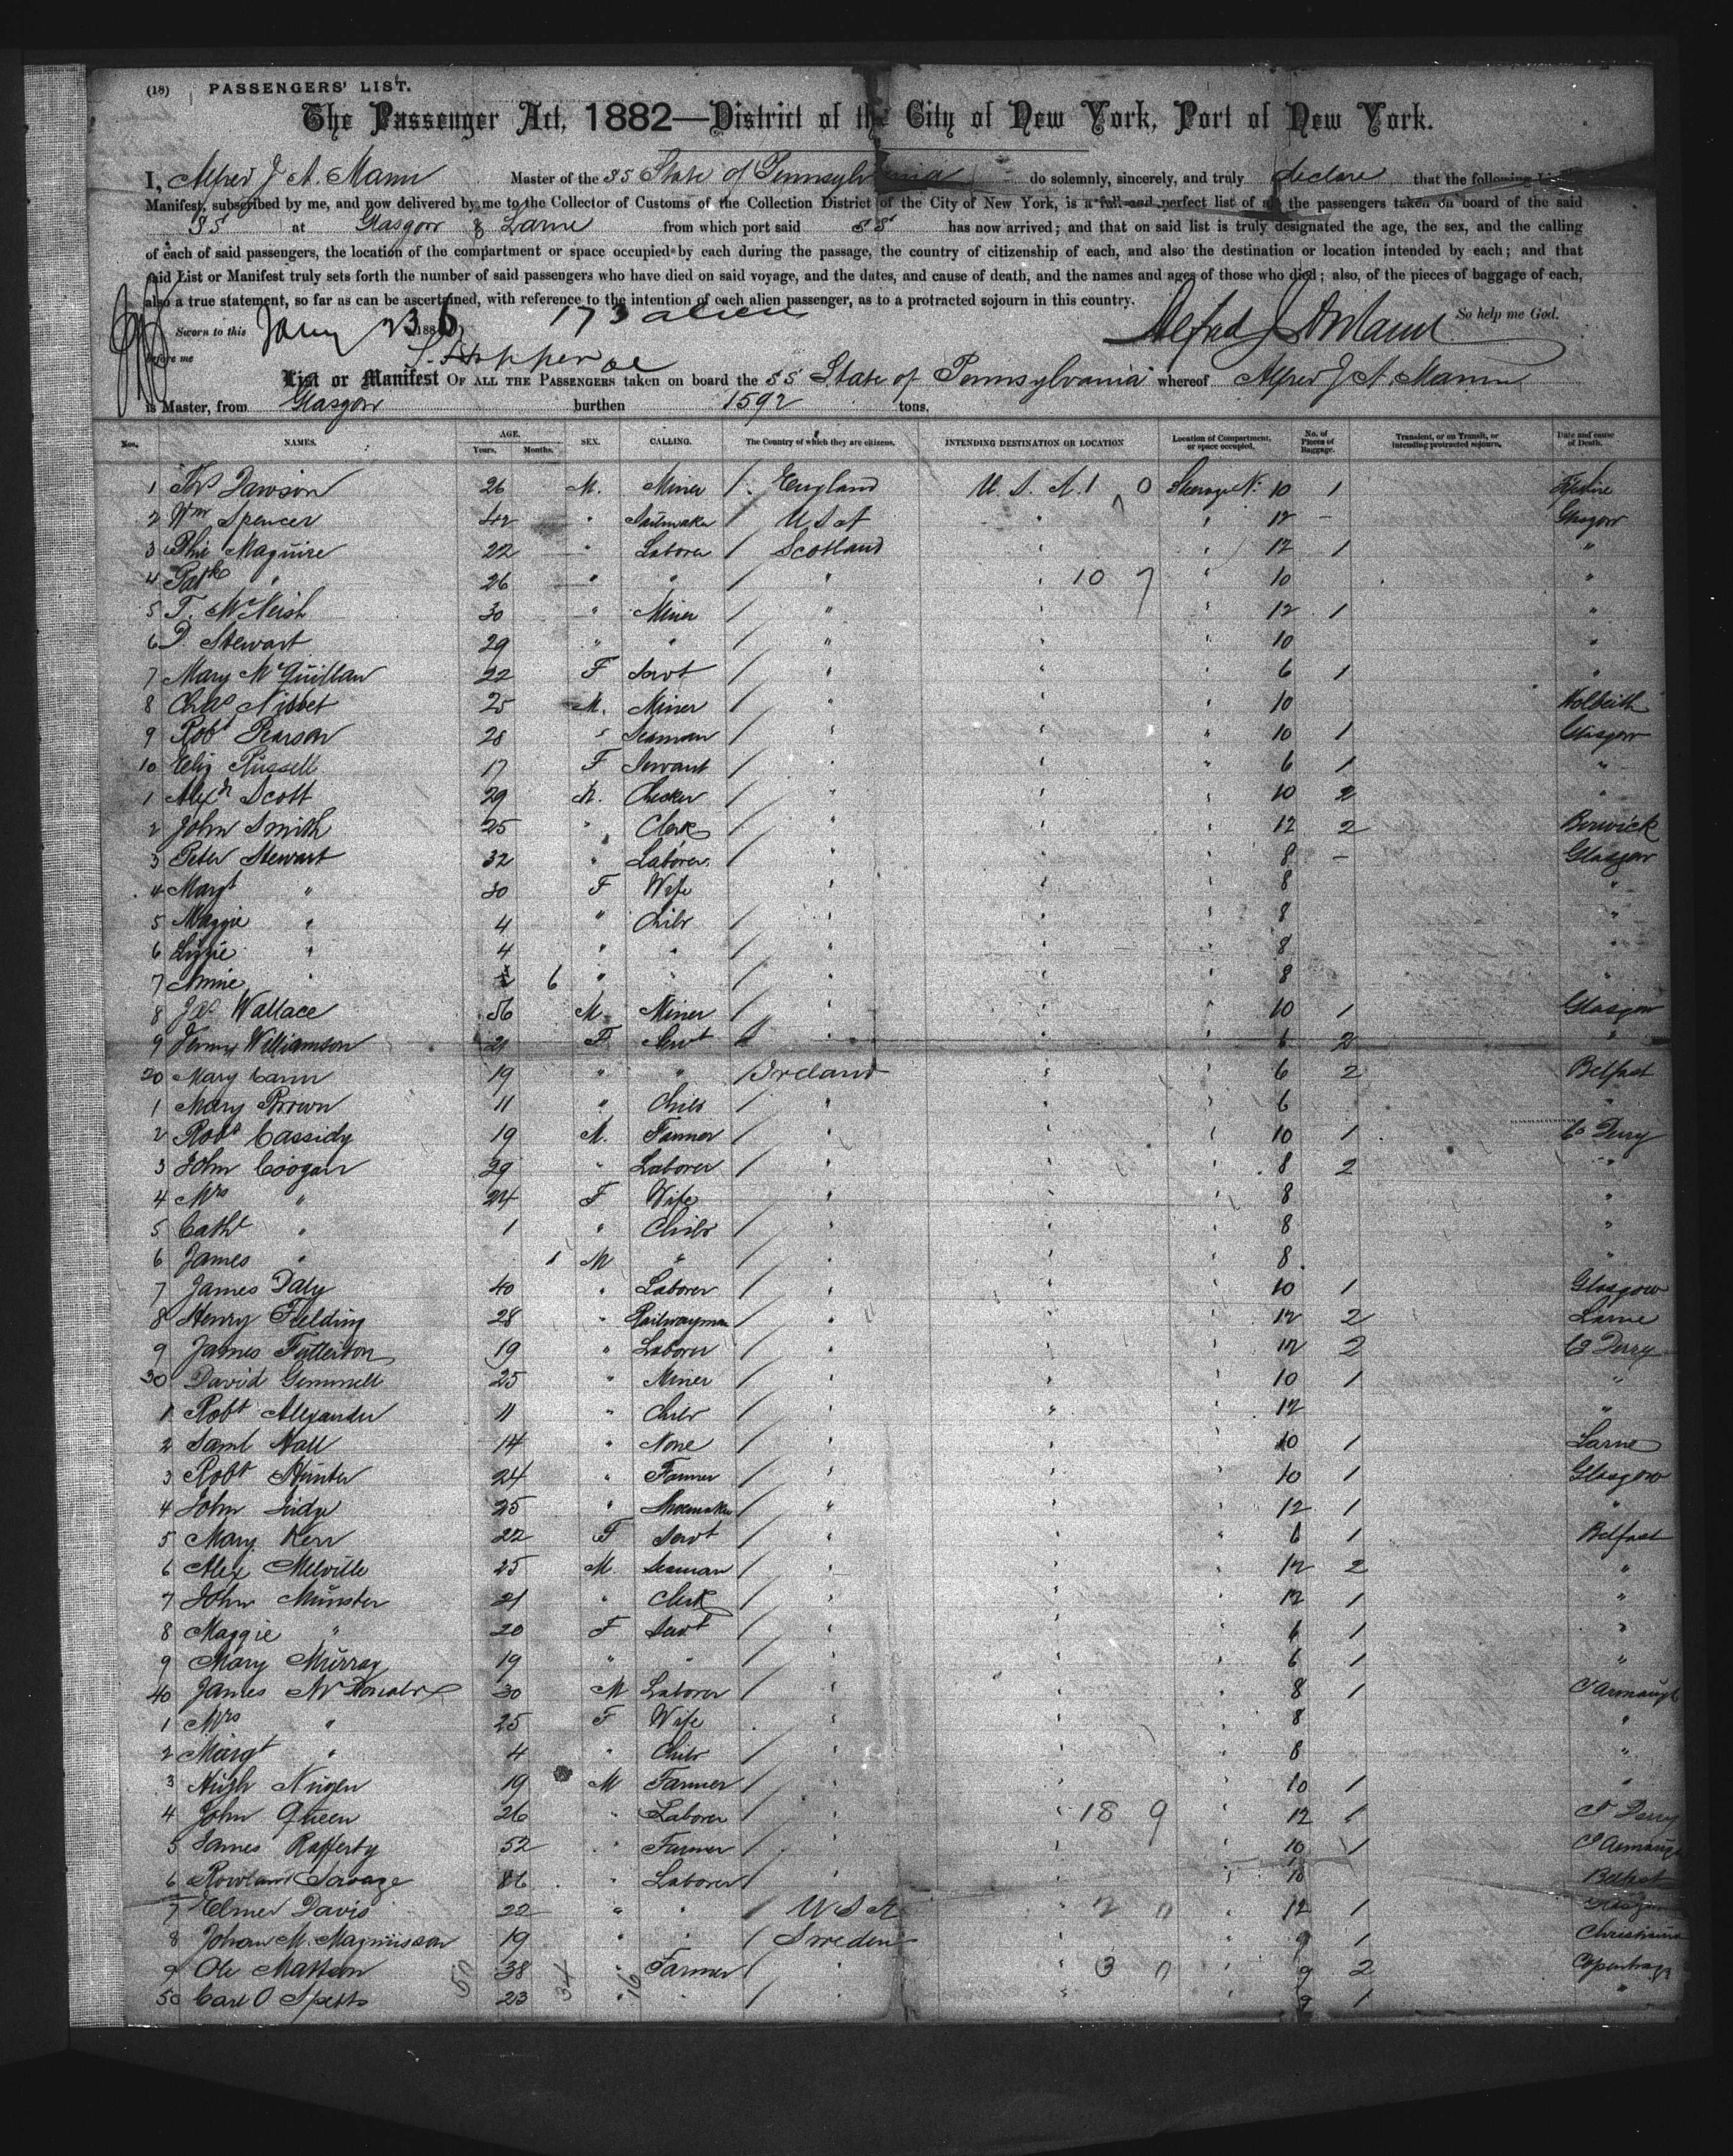 (18) PASSENGERS' LIST.
The Passenger Act, 1882—District of the City of New York, Port of New York.
I, Alfred J A. Mann Master of the SS State of Pennsylvania do solemnly, sincerely, and truly declare that the following List or
Manifest, subscribed by me, and now delivered by me to the Collector of Customs of the Collection District of the City of New York, is a full and perfect list of all the passengers taken on board of the said
SS at Glasgow & Larne from which port said SS has now arrived; and that on said list is truly designated the age, the sex, and the calling
of each of said passengers, the location of the compartment or space occupied by each during the passage, the country of citizenship of each, and also the destination or location intended by each; and that
said List or Manifest truly sets forth the number of said passengers who have died on said voyage, and the dates, and cause of death, and the names and ages of those who died; also, of the pieces of baggage of each,
also a true statement, so far as can be ascertained, with reference to the intention of each alien passenger, as to a protracted sojourn in this country.
So help me God.
Sworn to this Jany 23 1886 173 alien Alfred J A Mann
before me
List or Manifest OF ALL THE PASSENGERS taken on board the SS State of Pennsylvania whereof Alfred J A. Mann
is Master, from Glasgow burthen 1592 tons.
Nos. NAMES. AGE. Years. Months. SEX. CALLING. The Country of which they are citizens. INTENDING DESTINATION OR LOCATION Location of Compartment, or space occupied. No. of Pieces of Baggage. Transient, or on Transit, or intending protracted sojourn. Date and cause of Death.
1 Dawson 26 M. Miner / England U. S. A. 1 0 Steerage No 10 1
2 Wm Spencer 42 " Sailmaker USA " " 12 – Glasgow
3 Phil Maguire 22 " Laborer / Scotland " " 12 1 "
4 Patk " 26 " " / " " 10 7 " 10 "
5 T. McNeish 30 " Miner / " " " 12 1 "
6 D. Stewart 29 " " / " " " 10 "
7 Mary McQuillan 22 F Servt / " " " 6 1 "
8 Chas Nisbet 25 M. Miner / " " " 10
9 Robt Pearson 28 " Seaman / " " " 10 1 Glasgow
10 Eliz Russell 17 F Servant / " " " 6 1 "
1 Alexr Scott 29 M. Checker / " " " 10 2 "
2 John Smith 25 " Clerk / " " " 12 2 Berwick
3 Peter Stewart 32 " Laborer / " " " 8 – Glasgow
4 Margt " 30 F Wife " " " 8 "
5 Maggie " 4 " Child / " " " 8 "
6 Lizzie " 4 " " / " " " 8 "
7 Annie " 6 " " / " " " 8 "
8 Jas Wallace 56 M Miner / " " " 10 1 Glasgow
9 Jenny Williamson 21 F Servt / " " " 6 2 "
20 Mary Cann 19 " " / Ireland " " 6 2 Belfast
1 Mary Brown 11 " Child / " " " 6 "
2 Robt Cassidy 19 M. Farmer / " " " 10 1 Co Derry
3 John Coogan 29 " Laborer / " " " 8 2 "
4 Mrs " 24 F Wife " " " 8 "
5 Cathe " 1 " Child / " " " 8 "
6 James " 1 M " / " " " 8 "
7 James Daly 40 " Laborer / " " " 10 1 Glasgow
8 Henry Fielding 28 " Railwayman / " " " 12 2 Larne
9 James Fullerton 19 " Laborer / " " " 12 2 Co Derry
30 David Gemmell 25 " Miner / " " " 10 1 "
1 Robt Alexander 11 " Child / " " " 12 "
2 Saml Hall 14 " None / " " " 10 1 Larne
3 Robt Hunter 24 " Farmer / " " " 10 1 Glasgow
4 John 25 " Shoemaker / " " " 12 1 "
5 Mary Kerr 22 F Servt / " " " 6 1 Belfast
6 Alex Melville 25 M. Seaman / " " " 12 2 "
7 John Munster 21 " Clerk / " " " 12 1 "
8 Maggie " 20 F Servt / " " " 6 1 "
9 Mary Murray 19 " " / " " " 6 1 "
40 James McDonald 30 M Laborer / " " " 8 1 Co Armaugh
1 Mrs " 25 F Wife " " " 8 "
2 Margt " 4 " Child / " " " 8 "
3 Hugh Nugen 19 M Farmer / " " " 10 1 "
4 John Queen 26 " Laborer / " " 18 9 " 12 1 Co Derry
5 James Rafferty 52 " Farmer / " " " 10 1 Co Armaugh
6 Rowland Savage 86 " Laborer / " " " 10 Belfast
7 Elmer Davis 22 " " / USA " 2 0 " 12 1 Glasgow
8 Johan M. Magnusson 19 " " / Sweden " " 9 1 Christiania
9 Ole Mattson 38 " Farmer / " " 3 0 " 9 2 Copenhagen
50 Carl O Spetts 23 " " / " " " 9 1 "
50 34 16